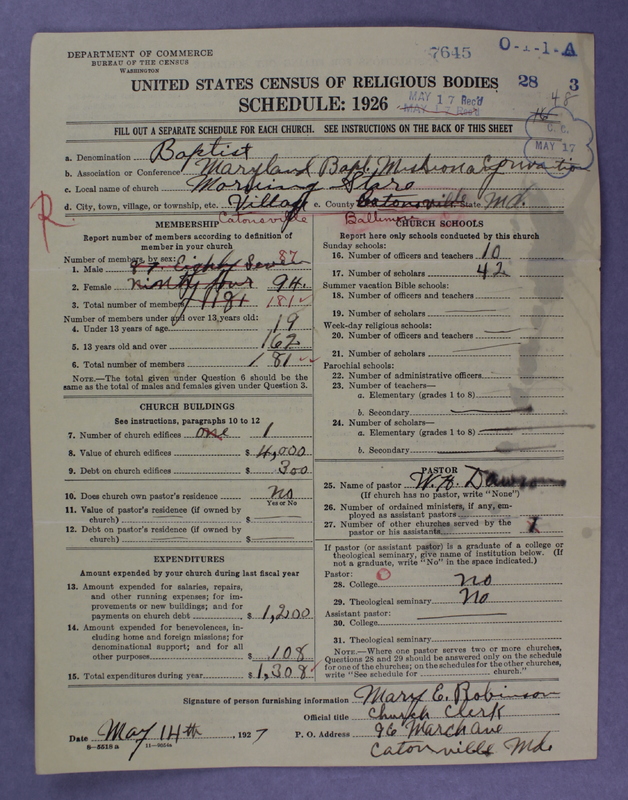 DEPARTMENT OF COMMERCE
BUREAU OF THE CENSUS
WASHINGTON
7645
O-1-1-A
UNITED STATES CENSUS OF RELIGIOUS BODIES
28 3
SCHEDULE: 1926
MAY 17 Rec'd
MAY 17 Rec'd
48
16
C. C.
MAY 17
FILL OUT A SEPARATE SCHEDULE FOR EACH CHURCH. SEE INSTRUCTIONS ON THE BACK OF THIS SHEET
a. Denomination Baptist
b. Association or Conference Maryland Bapt. Missionary
c. Local name of church Morning Starr
d. City, town, village, or township, etc. Village e. County Catonsville State Md.
R Catonsville Baltimore
MEMBERSHIP
Report number of members according to definition of
member in your church
Number of members, by sex:
1. Male 87 Eighty Seven 87
2. Female Ninety four 94
3. Total number of members 181 181
Number of members under and over 13 years old:
4. Under 13 years of age 19
5. 13 years old and over 162
6. Total number of members 181
NOTE.—The total given under Question 6 should be the
same as the total of males and females given under Question 3.
CHURCH BUILDINGS
See instructions, paragraphs 10 to 12
7. Number of church edifices one 1
8. Value of church edifices $ 4,000
9. Debt on church edifices $ 300
10. Does church own pastor's residence No
Yes or No
11. Value of pastor's residence (if owned by
church) $
12. Debt on pastor's residence (if owned by
church) $
EXPENDITURES
Amount expended by your church during last fiscal year
13. Amount expended for salaries, repairs,
and other running expenses; for im-
provements or new buildings; and for
payments on church debt $ 1,200
14. Amount expended for benevolences, in-
cluding home and foreign missions; for
denominational support; and for all
other purposes $ 108
15. Total expenditures during year $ 1,308
CHURCH SCHOOLS
Report here only schools conducted by this church
Sunday schools:
16. Number of officers and teachers 10
17. Number of scholars 42
Summer vacation Bible schools:
18. Number of officers and teachers
19. Number of scholars
Week-day religious schools:
20. Number of officers and teachers
21. Number of scholars
Parochial schools:
22. Number of administrative officers
23. Number of teachers—
a. Elementary (grades 1 to 8)
b. Secondary
24. Number of scholars—
a. Elementary (grades 1 to 8)
b. Secondary
PASTOR
25. Name of pastor W. H. Dawson
(If church has no pastor, write "None")
26. Number of ordained ministers, if any, em-
ployed as assistant pastors
27. Number of other churches served by the
pastor or his assistants 1
If pastor (or assistant pastor) is a graduate of a college or
theological seminary, give name of institution below. (If
not a graduate, write "No" in the space indicated.)
Pastor:
28. College No
29. Theological seminary No
Assistant pastor:
30. College
31. Theological seminary
NOTE.—Where one pastor serves two or more churches,
Questions 28 and 29 should be answered only on the schedule
for one of the churches; on the schedules for the other churches,
write "See schedule for church."
Signature of person furnishing information Mary E. Robinson
Official title Church Clerk
Date May 14th, 1927 P. O. Address 96 March ave
8-5518 a
Catonville Md.